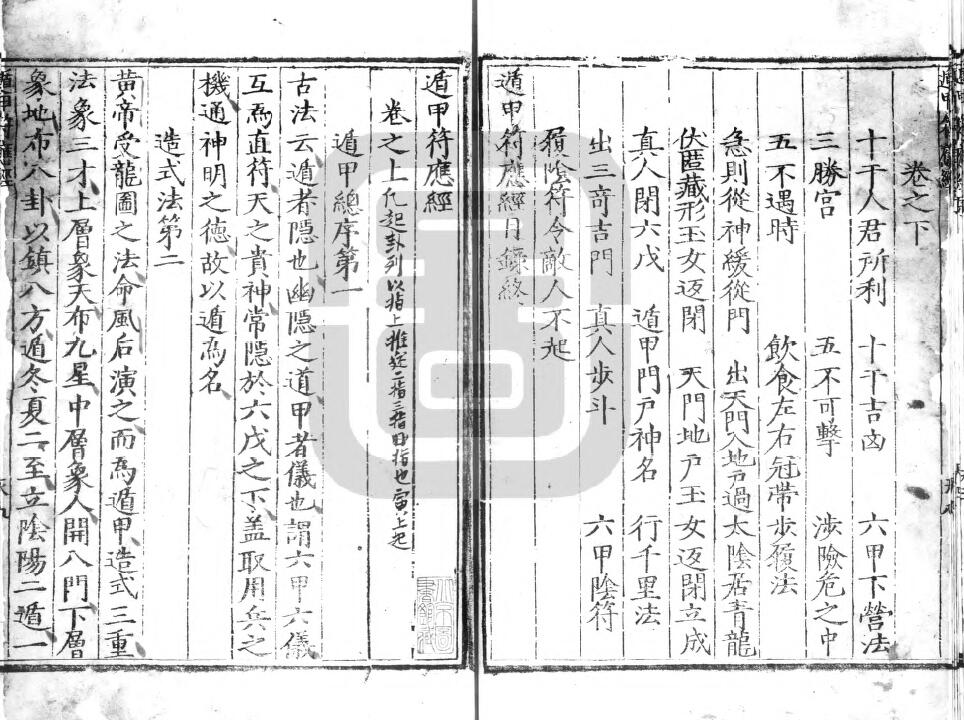 卷之下
十干人君所利　十干吉凶　六甲下營法
三勝宮　五不可擊　涉險危之中
五不遇時　飲食左右冠帶步履法
急則從神緩從門　出天門入地戶過太陰居青龍
伏匿藏形玉女返閉　天門地戶玉女返閉立成
真人閉六戊　遁甲門戶神名　行千里法
出三奇吉門　真人步斗　六甲陰符
履陰符令敵人不起
遁甲符應經目錄終
遁甲符應經
卷之上凡起卦列以指上推定二指三指四指也
遁甲總序第一
古法云遁者隱也幽隱之道甲者儀也謂六甲六儀
互爲直符天之貴神常隱於六戊之下盖取用兵之
機通神明之德故以遁爲名
造式法第二
黄帝受龍圖之法命風后演之而爲遁甲造式三重
法象三才上層象天布九星中層象人開八門下層
象地布八卦以鎮八方遁冬夏二至立陰陽二遁一